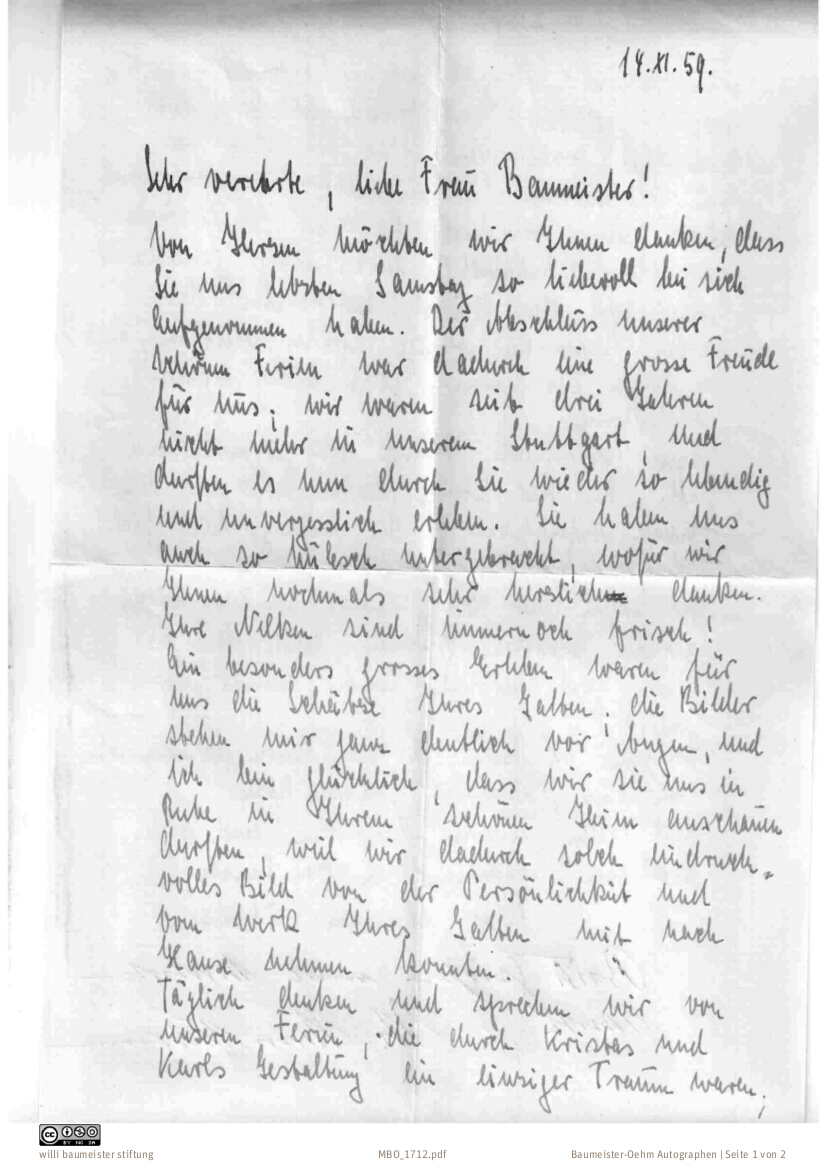 14.XI.59.
Sehr verehrte, liebe Frau Baumeister!
Von Herzen möchten wir Ihnen danken, dass
Sie uns letzten Samstag so liebevoll bei sich
aufgenommen haben. Der Abschluss unserer
schönen Ferien war dadurch eine grosse Freude
für uns; wir waren seit drei Jahren
nicht mehr in unserem Stuttgart, und
durften es nun durch Sie wieder so lebendig
und unvergesslich erleben. Sie haben uns
auch so hübsch untergebracht, wofür wir
Ihnen nochmals sehr herzlich danken.
Ihre Nelken sind immernoch frisch!
Ein besonders grosses Erleben waren für
uns die Schätze Ihres Gatten. Die Bilder
stehen mir ganz deutlich vor Augen, und
ich bin glücklich, dass wir sie uns in
Ruhe in Ihrem schönen Heim anschauen
durften, weil wir dadurch solch eindrucks-
volles Bild von der Persönlichkeit und
vom Werk Ihres Gatten mit nach
Hause nehmen konnten.
Täglich denken und sprechen wir von
unseren Ferien, die durch Kristas und
Karls Gestaltung ein einziger Traum waren;
willi baumeister stiftung
MBO_1712.pdf
Baumeister-Oehm Autographen | Seite 1 von 2